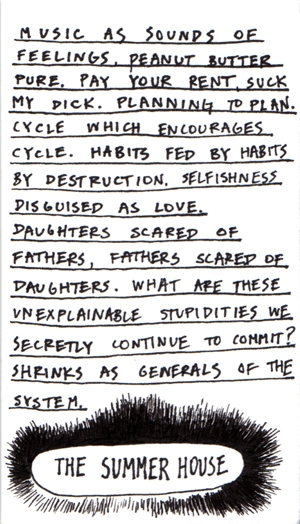 MUSIC AS SOUNDS OF
FEELINGS, PEANUT BUTTER
PURE. PAY YOUR RENT, SUCK
MY DICK. PLANNING TO PLAN.
CYCLE WHICH ENCOURAGES
CYCLE. HABITS FED BY HABITS
BY DESTRUCTION. SELFISHNESS
DISGUISED AS LOVE.
DAUGHTERS SCARED OF
FATHERS, FATHERS SCARED OF
DAUGHTERS. WHAT ARE THESE
UNEXPLAINABLE STUPIDITIES WE
SECRETLY CONTINUE TO COMMIT?
SHRINKS AS GENERALS OF THE
SYSTEM.
THE SUMMER HOUSE